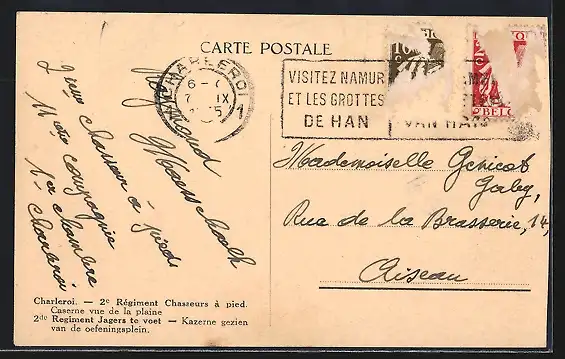 CARTE POSTALE
CHARLEROI
1
VISITEZ NAMUR
ET LES GROTTES
DE HAN
VAN HAN
BELG
Raymond
2me chasseur à pieds
11me compagnie
1re chambre
Charleroi
Mademoiselle Genicot
Gaby,
Rue de la Brasserie, 14,
Aiseau
Charleroi. — 2e Régiment Chasseurs à pied.
Caserne vue de la plaine
2de Regiment Jagers te voet — Kazerne gezien
van de oefeningsplein.